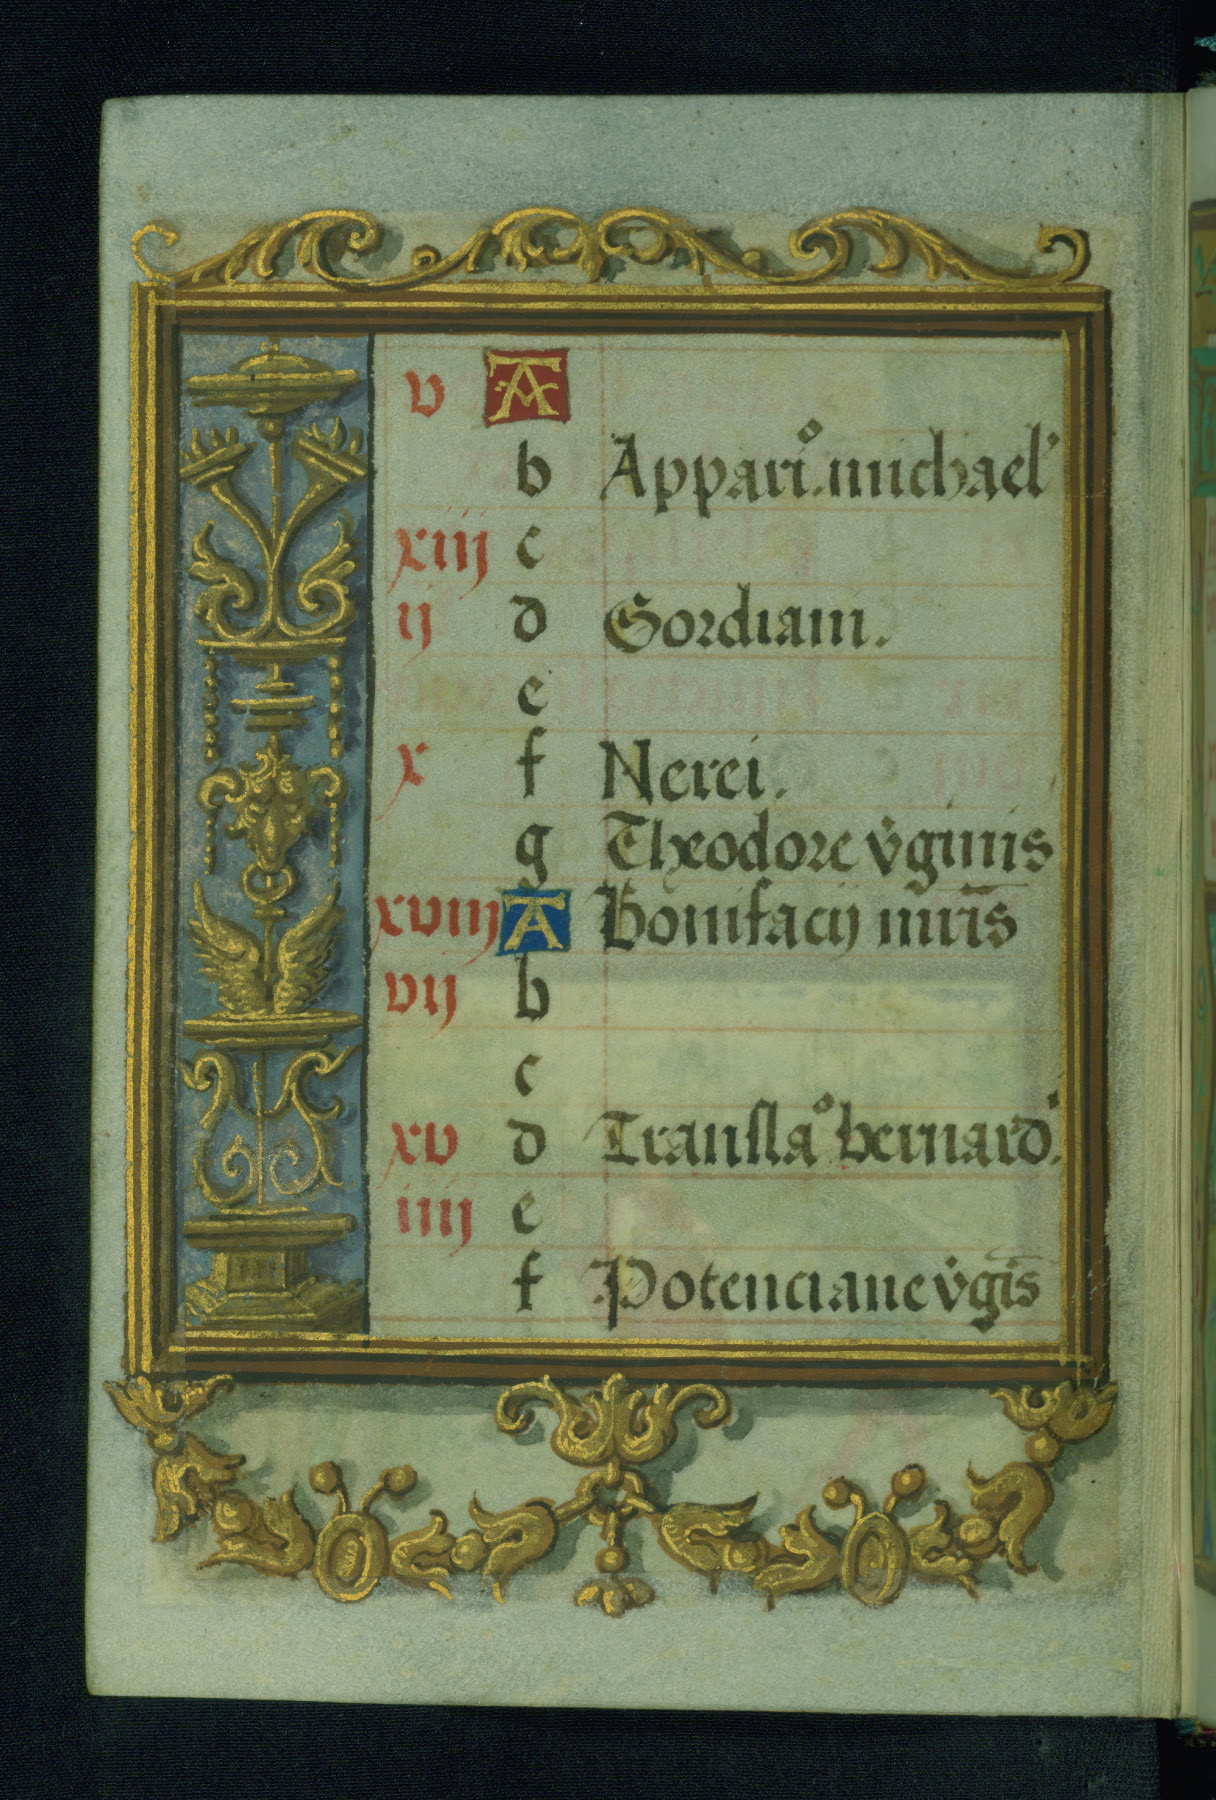 v A
b Apparı̊. michael'
xiij c
ij d Gordiani.
e
x f Nerei.
g Theodore v̊ginis
xviij A Bonifacij mr̄is
vij b
c
xv d Translå bernard'.
iiij e
f Potenciane v̊gīs